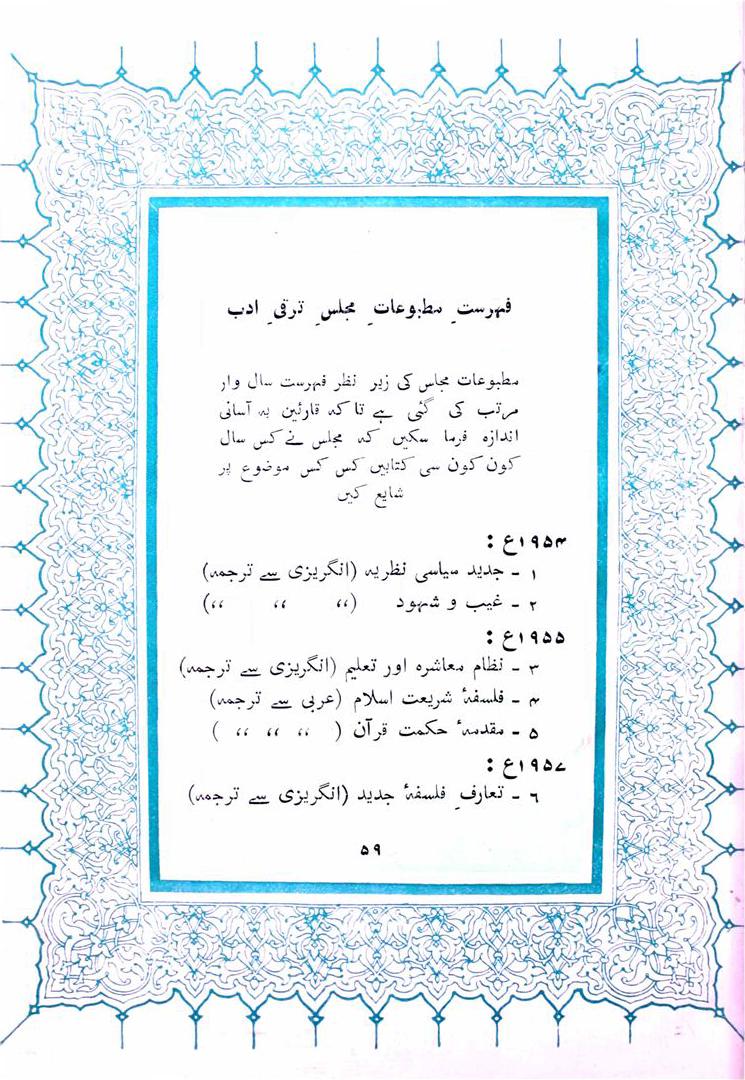 فہرستِ مطبوعاتِ مجلسِ ترقیِ ادب
مطبوعات مجلس کی زیر نظر فہرست سال وار
مرتب کی گئی ہے تاکہ قارئین بہ آسانی
اندازہ فرما سکیں کہ مجلس نے کس سال
کون کون سی کتابیں کس کس موضوع پر
شایع کیں
۱۹۵۴ع :
۱ - جدید سیاسی نظریہ (انگریزی سے ترجمہ)
۲ - غیب و شہود (،، ،، ،،)
۱۹۵۵ع :
۳ - نظام معاشرہ اور تعلیم (انگریزی سے ترجمہ)
۴ - فلسفۂ شریعت اسلام (عربی سے ترجمہ)
۵ - مقدمۂ حکمت قرآن ( ،، ،، ،، )
۱۹۵۷ع :
۶ - تعارفِ فلسفۂ جدید (انگریزی سے ترجمہ)
۵۹